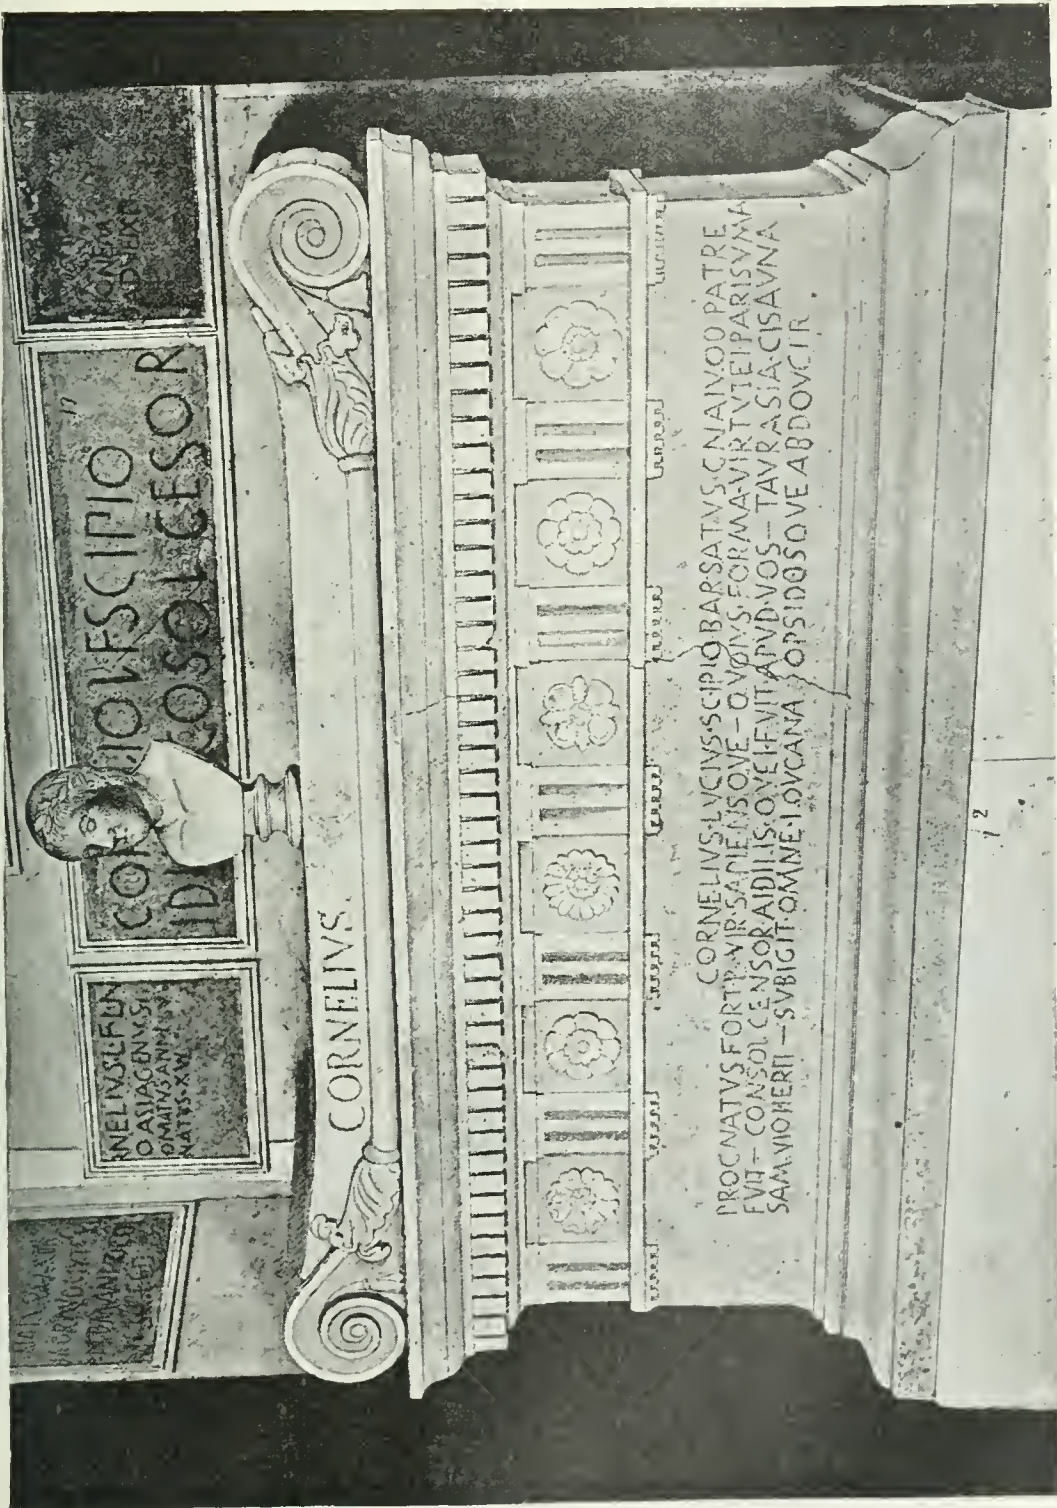 RNELIVS·L·F·L·N
O ASIAGENVS
OMATVS·ANN
NATVS·XVI
COR IO L·F SCIPIO
ID COSOL CESOR
ONEM
CORNELIVS
CORNELIVS·LVCIVS·SCIPIO BARSATVS·GNAIVOD PATRE
PROGNATVS FORTIS VIR·SAPIENSQVE—QVOIVS·FORMA·VIRTVTEI PARISVMA
FVIT—CONSOL CENSOR·AIDILIS·QVEI·FVIT APVD·VOS—TAVRASIA·CISAVNA
SAM —SVBIGIT·OMNE·LOVCANA OPSIDOSQVE ABDOVCIR